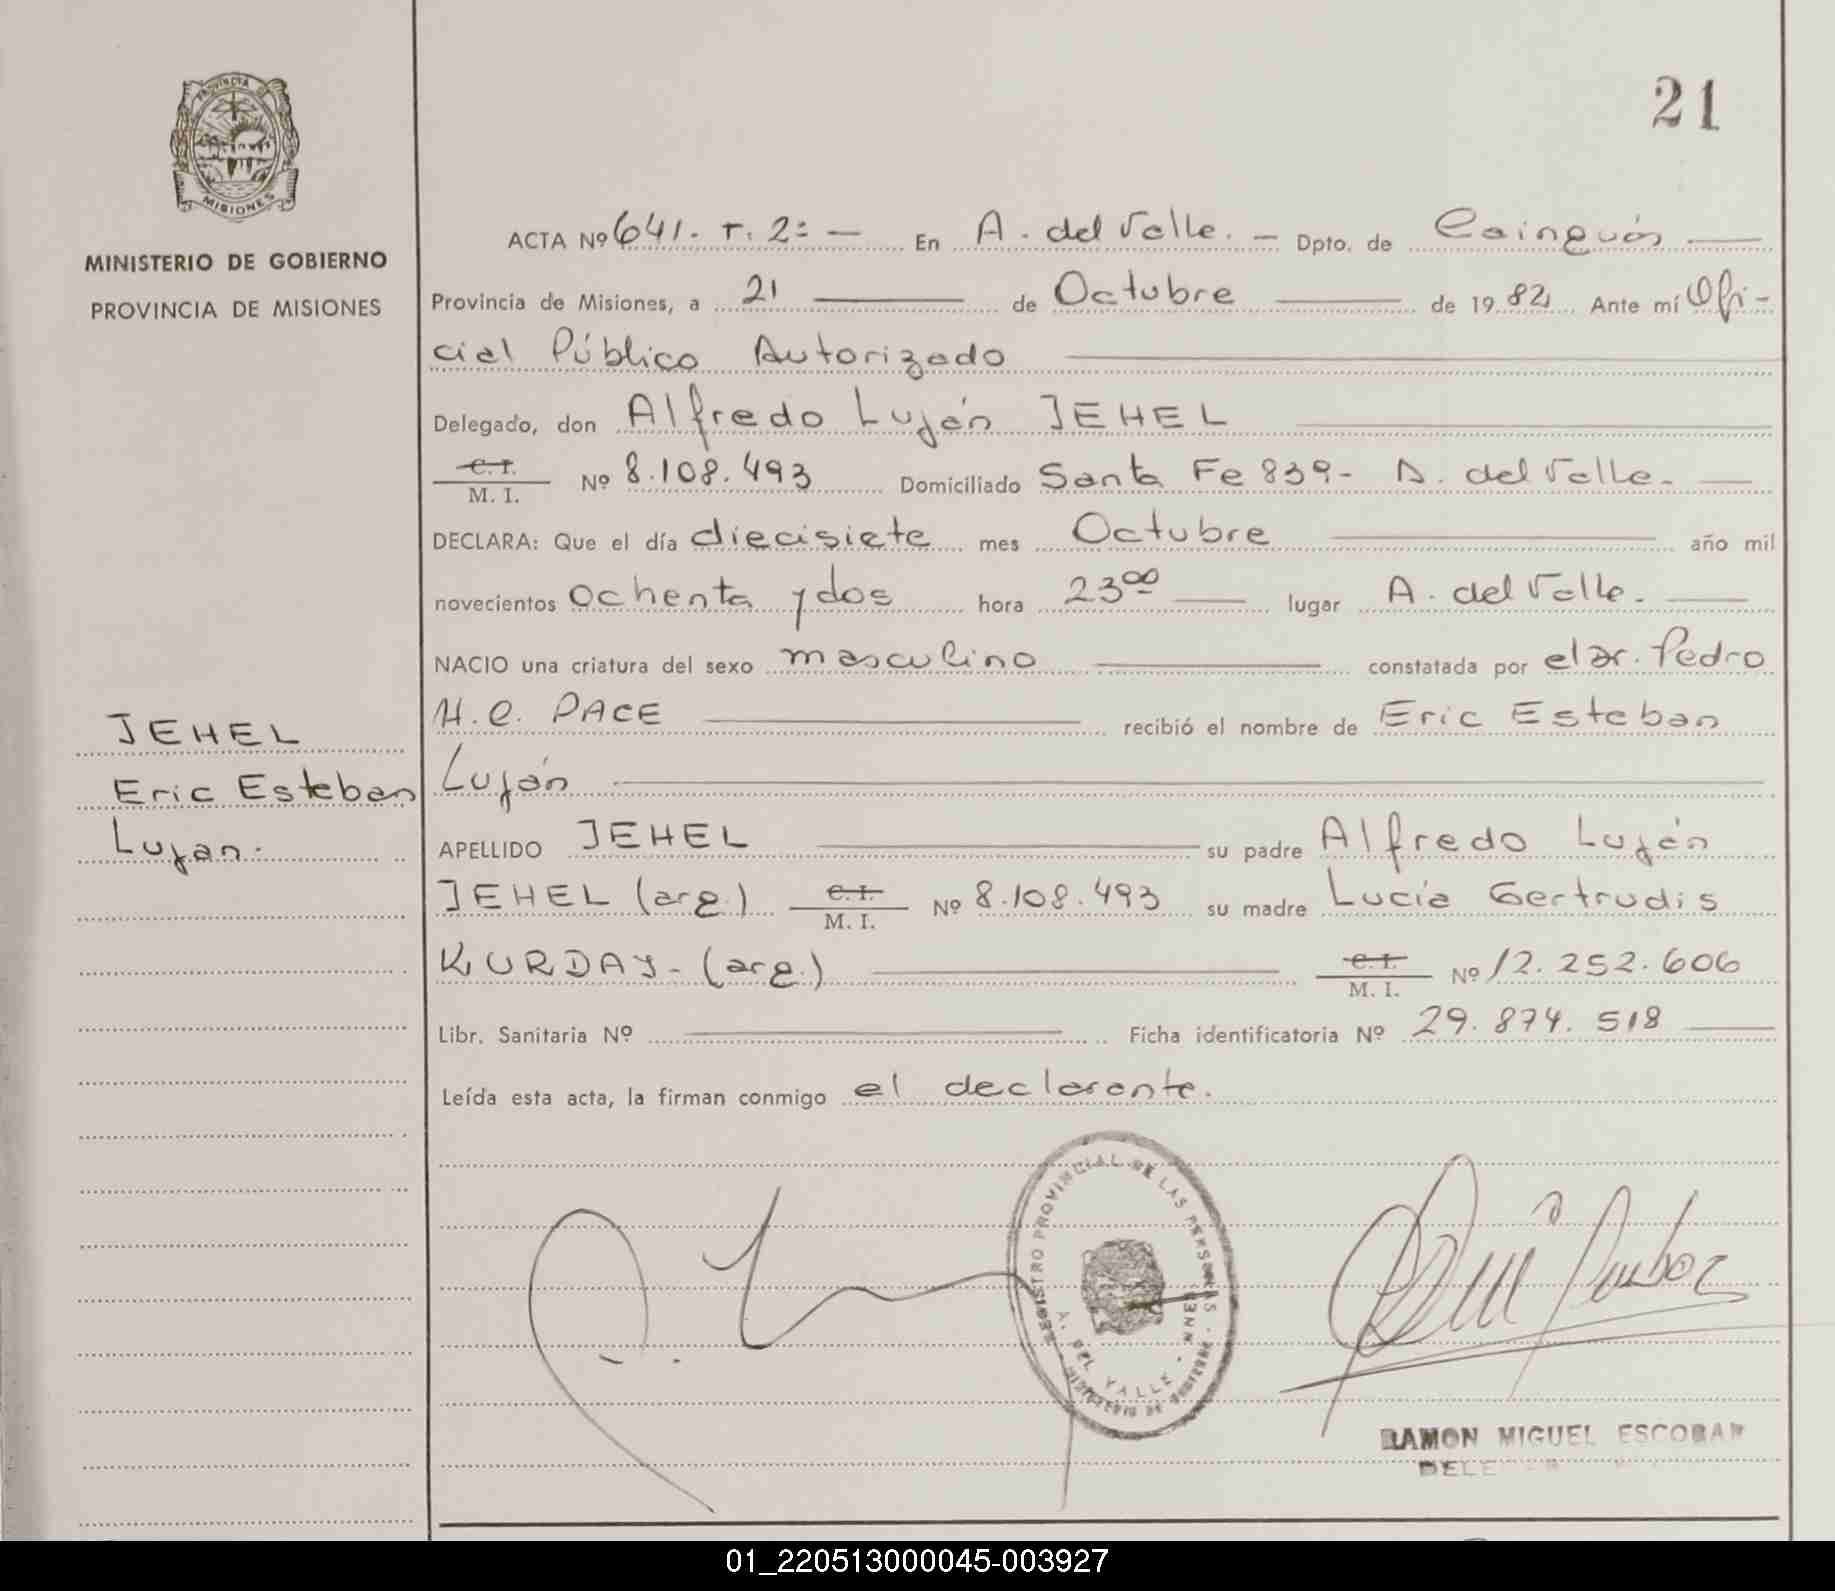 21
PROVINCIA DE
MISIONES
MINISTERIO DE GOBIERNO
PROVINCIA DE MISIONES
JEHEL
Eric Esteban
Lujan.
ACTA Nº 641. T. 2º - En A. del Valle. - Dpto. de Cainguás
Provincia de Misiones, a 21 de Octubre de 1982 Ante mí Ofi-
cial Público Autorizado
Delegado, don Alfredo Luján JEHEL
C. I.
M. I. Nº 8.108.493 Domiciliado Santa Fe 839- A. del Valle.
DECLARA: Que el día diecisiete mes Octubre año mil
novecientos ochenta y dos hora 23⁰⁰ lugar A. del Valle.
NACIO una criatura del sexo masculino constatada por el Dr. Pedro
H.C. PACE recibió el nombre de Eric Esteban
Luján
APELLIDO JEHEL su padre Alfredo Luján
JEHEL (arg.) C. I.
M. I. Nº 8.108.493 su madre Lucía Gertrudis
KURDAY- (arg.) C. I.
M. I. Nº 12.252.606
Libr. Sanitaria Nº Ficha identificatoria Nº 29.874.518
Leída esta acta, la firman conmigo el declarante.
REGISTRO PROVINCIAL DE LAS PERSONAS
A. DEL VALLE
RAMON MIGUEL ESCOBAR
01_220513000045-003927